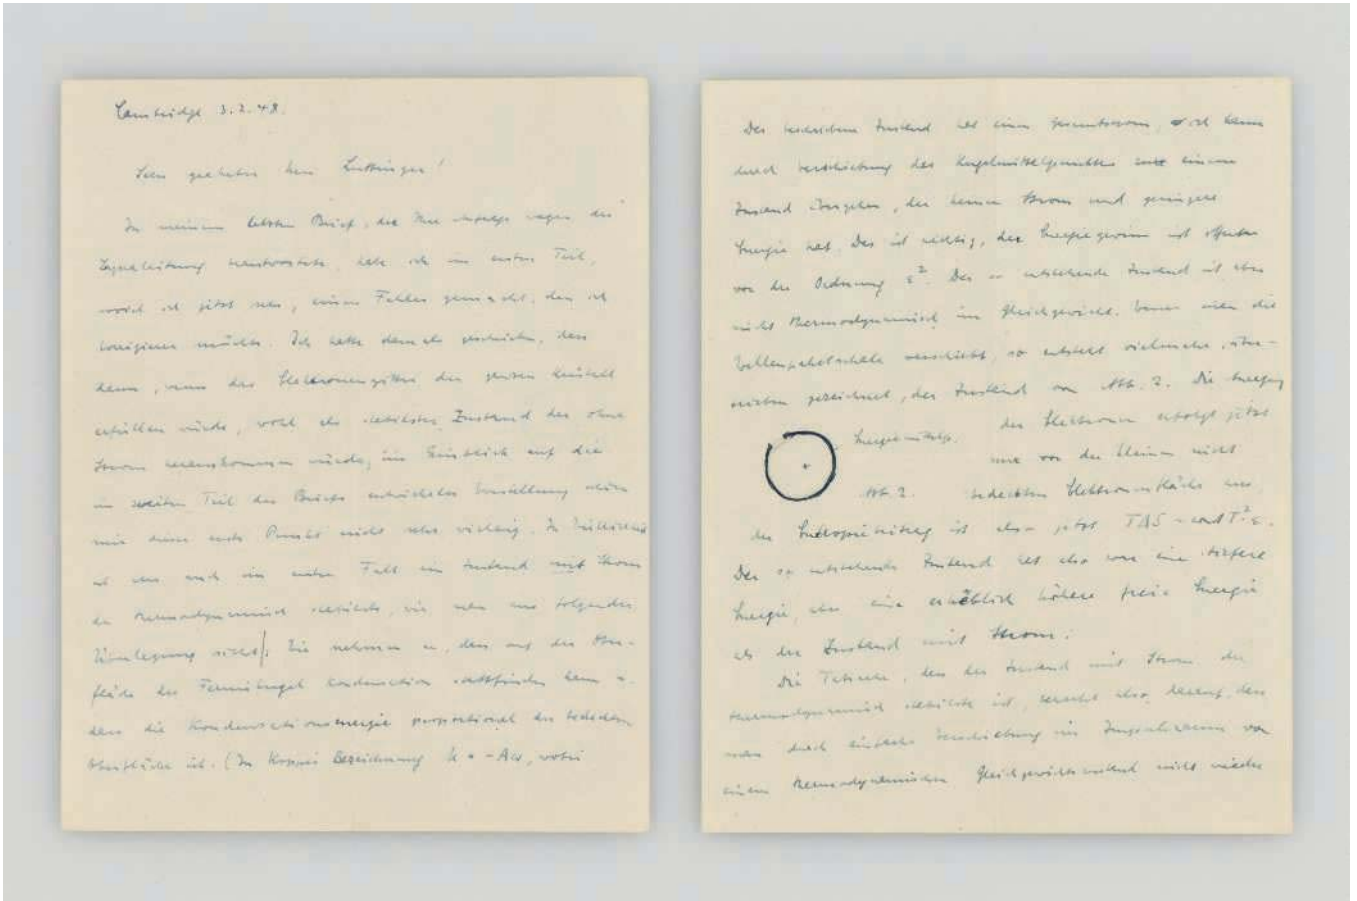 Cambridge 3.2.48.
Sehr geehrter Herr Luttinger!
In meinem letzten Brief, der Ihre Anfrage wegen der
beantwortete, habe ich im ersten Teil,
wie ich jetzt sehe, einen Fehler gemacht, den ich
korrigieren möchte. Ich hatte damals geschrieben, dass
dann, wenn das Elektronengitter den ganzen Kristall
erfüllen würde, wohl als stabilster Zustand der ohne
Strom herauskommen würde, im Hinblick auf die
im zweiten Teil des Briefes Vorstellung
mir dieser erste Punkt nicht sehr wichtig. In Wirklichkeit
ist aber auch in Fall ein Zustand mit Strom
der thermodynamisch stabilste, wie man aus folgender
Überlegung sieht: Wir nehmen an, dass auf der Ober-
fläche der Fermikugel Kondensation stattfinden kann u.
dass die Kondensationsenergie proportional der bedeckten
Oberfläche ist. (In Koppes Bezeichnung = - Aω, wobei
Der Zustand hat einen Gesamtstrom, ich kann
durch Verschiebung des Kugelmittelpunktes einen
Zustand übergehen, der keinen Strom und geringere
Energie hat. Das ist richtig, der Energiegewinn ist offenbar
von der Ordnung ε². Der so entstehende Zustand ist aber
nicht thermodynamisch im Gleichgewicht. Wenn man die
Wellenpaketschale verschiebt, so entsteht vielmehr, über-
trieben gezeichnet, der Zustand von Abb. 2. Die Anregung
der Elektronen erfolgt jetzt
Energiemittelp.
nur von der kleinen nicht
Abb. 2.
bedeckten Elektronenfläche aus,
der Entropiebeitrag ist also jetzt TΔS = const T² ε.
Der so entstehende Zustand hat also zwar eine tiefere
Energie, aber eine erheblich höhere freie Energie
als der Zustand mit Strom.
Die Tatsache, dass der Zustand mit Strom der
thermodynamisch stabilste ist, beruht also darauf, dass
man durch einfache Verschiebung im Impulsraum von
einem thermodynamischen Gleichgewichtszustand nicht wieder